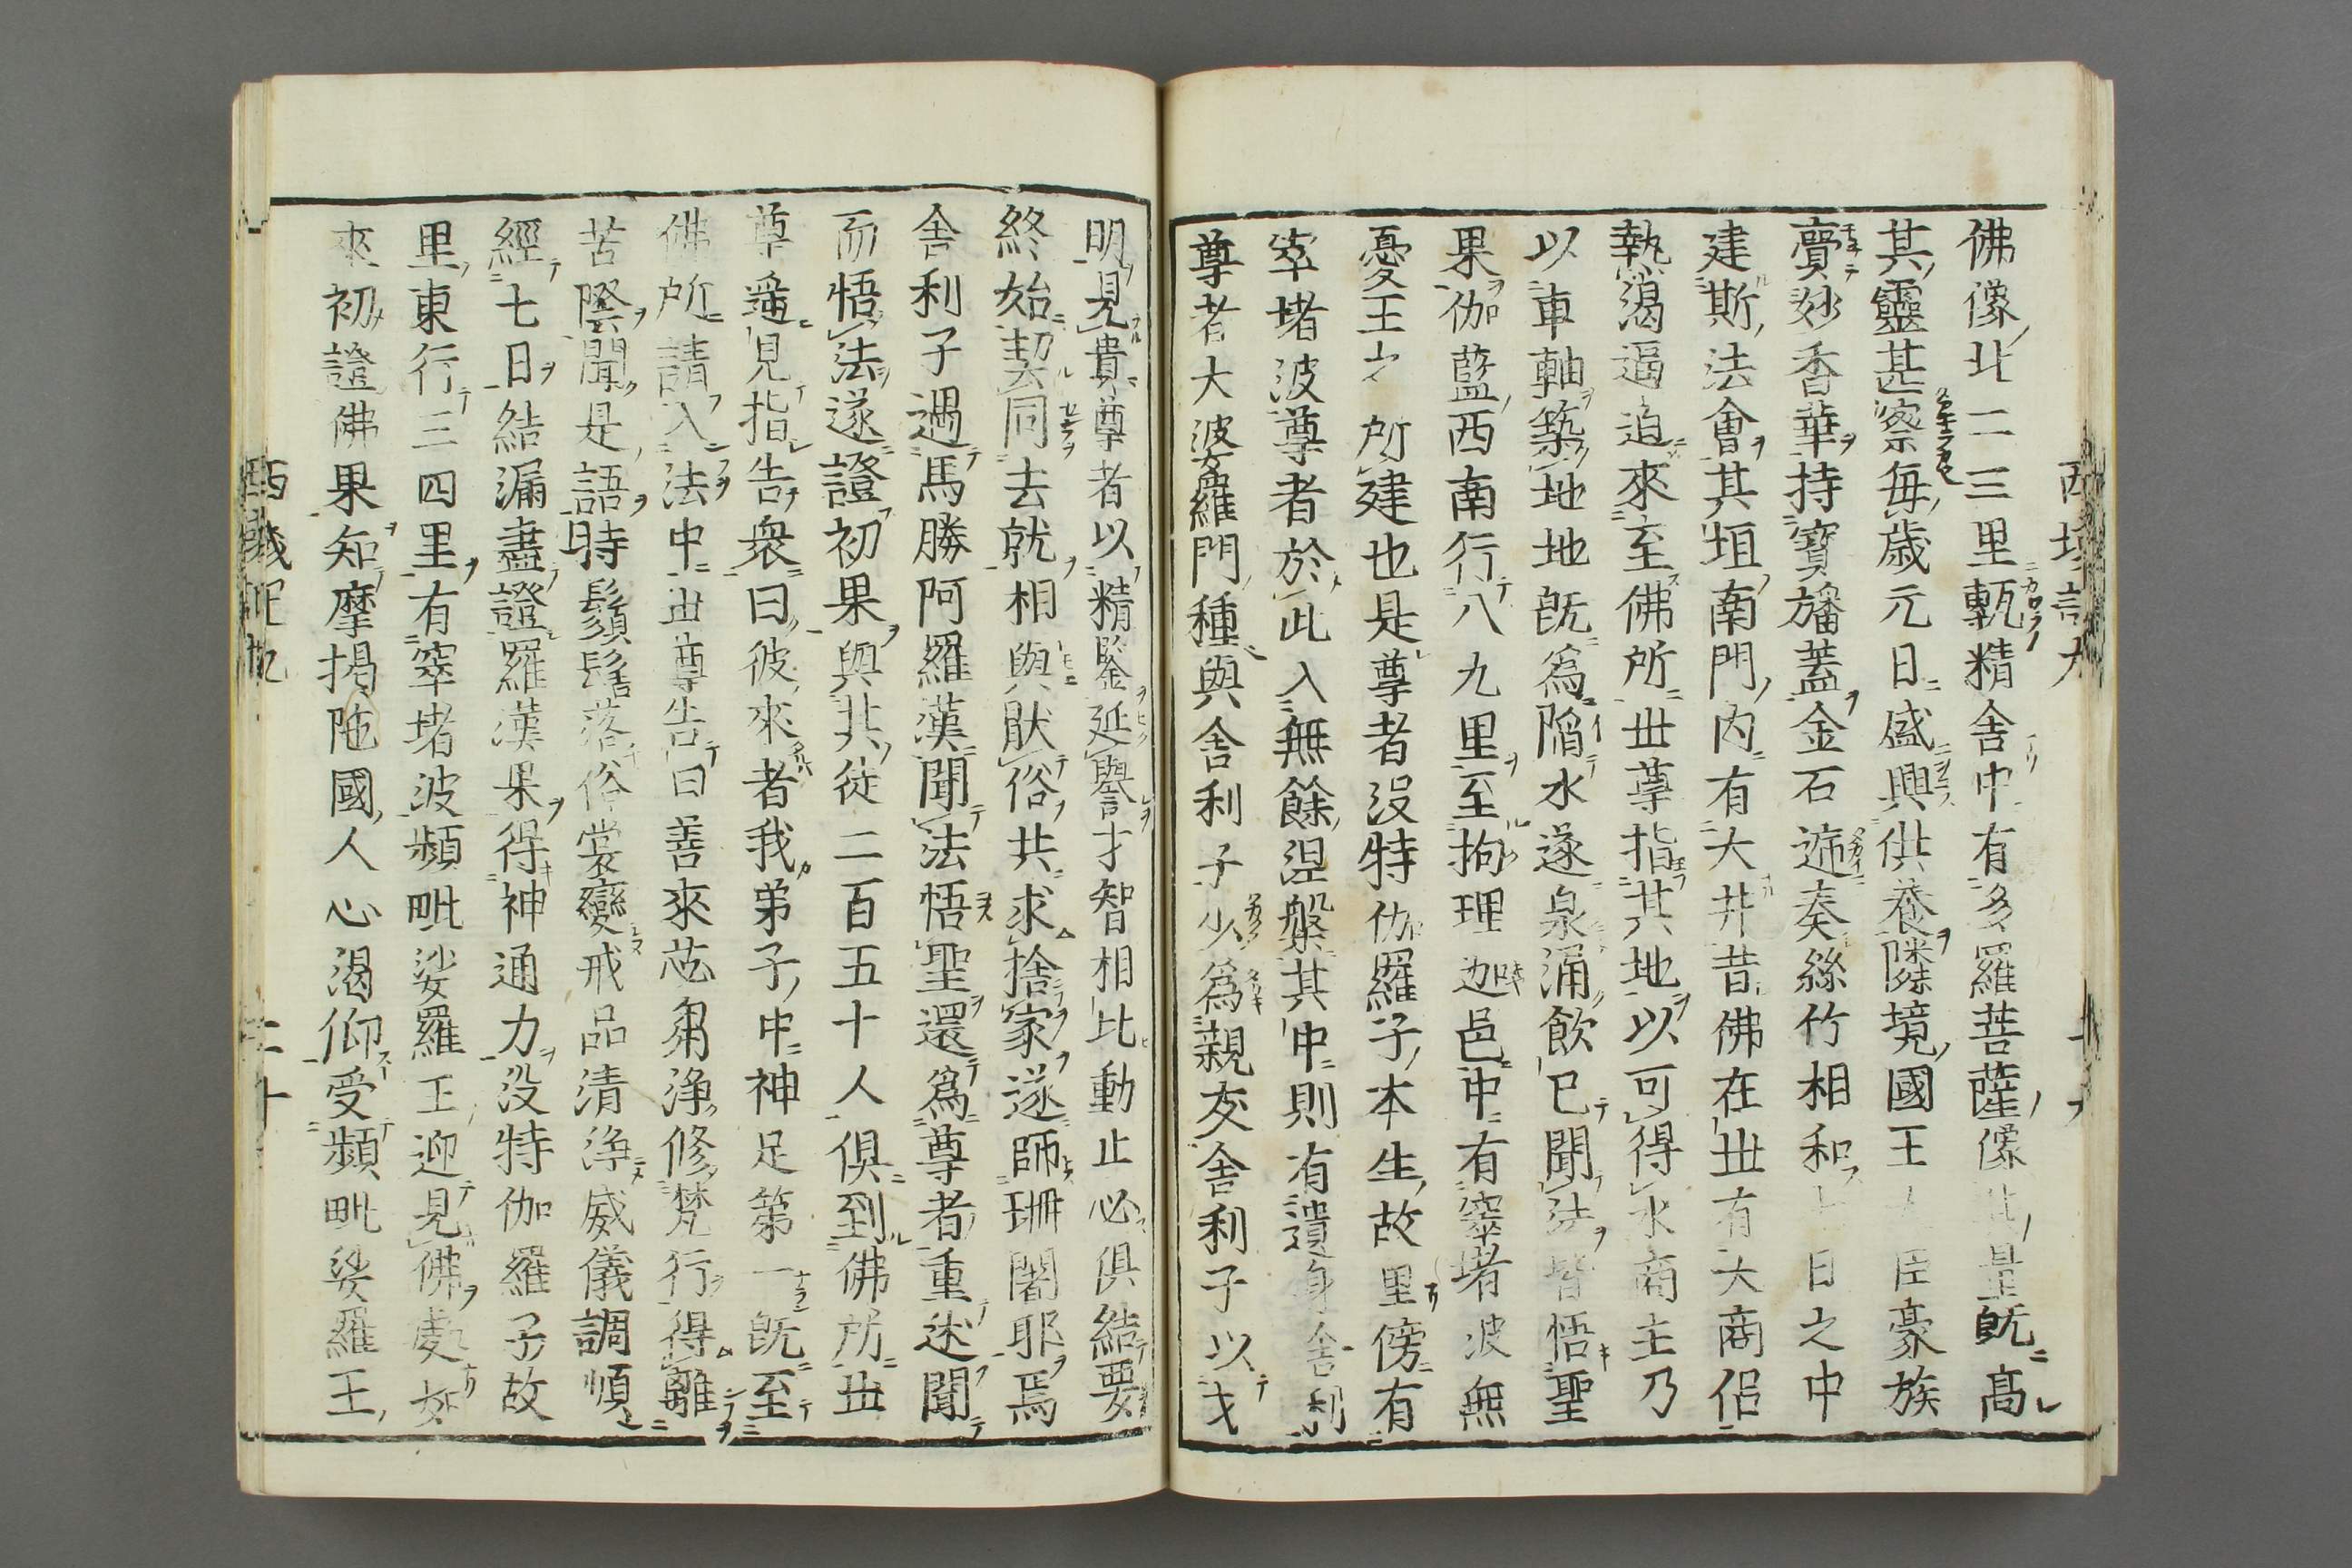 佛像北二三里甎精舍中有多羅菩薩像此量既高
其靈甚察每歲元日盛興供養隣境國王大臣豪族
賷妙香華持寶旛蓋金石遞奏絲竹相和七日之中
建斯法會其垣南門內有大井昔佛在世有大商侶
熱渴逼迫來至佛所世尊指其地以可得水商主乃
以車軸築地地既為陷水遂泉涌飲已聞法皆悟聖
果伽藍西南行八九里至拘理迦邑中有窣堵波無
憂王之所建也是尊者没特伽羅子本生故里傍有
窣堵波尊者於此入無餘涅槃其中則有遺身舍利
尊者大婆羅門種與舍利子少為親友舍利子以才
明見貴尊者以精鑒延譽才智相比動止必俱結要
終始契同去就相與猒俗共求捨家遂師珊闍耶焉
舍利子遇馬勝阿羅漢聞法悟聖還為尊者重述聞
而悟法遂證初果與其徒二百五十人俱到佛所世
尊遥見指告衆曰彼來者我弟子中神足第一既至
佛所請入法中世尊告曰善來苾芻淨修梵行得離
苦際聞是語時鬚髮落俗裳變戒品清淨威儀調順
經七日結漏盡證羅漢果得神通力没特伽羅子故
里東行三四里有窣堵波頻毗娑羅王迎見佛處如
來初證佛果知摩揭陁國人心渴仰受頻毗娑羅王
西域記九
二十